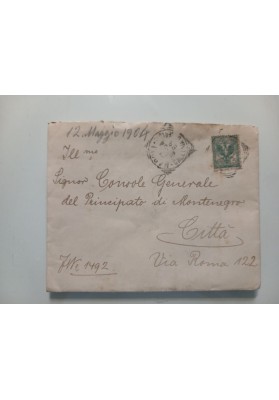 12 Maggio 1904
Ill mo
Signor Console Generale
del Principato di Montenegro
Città
Via Roma 122
1492